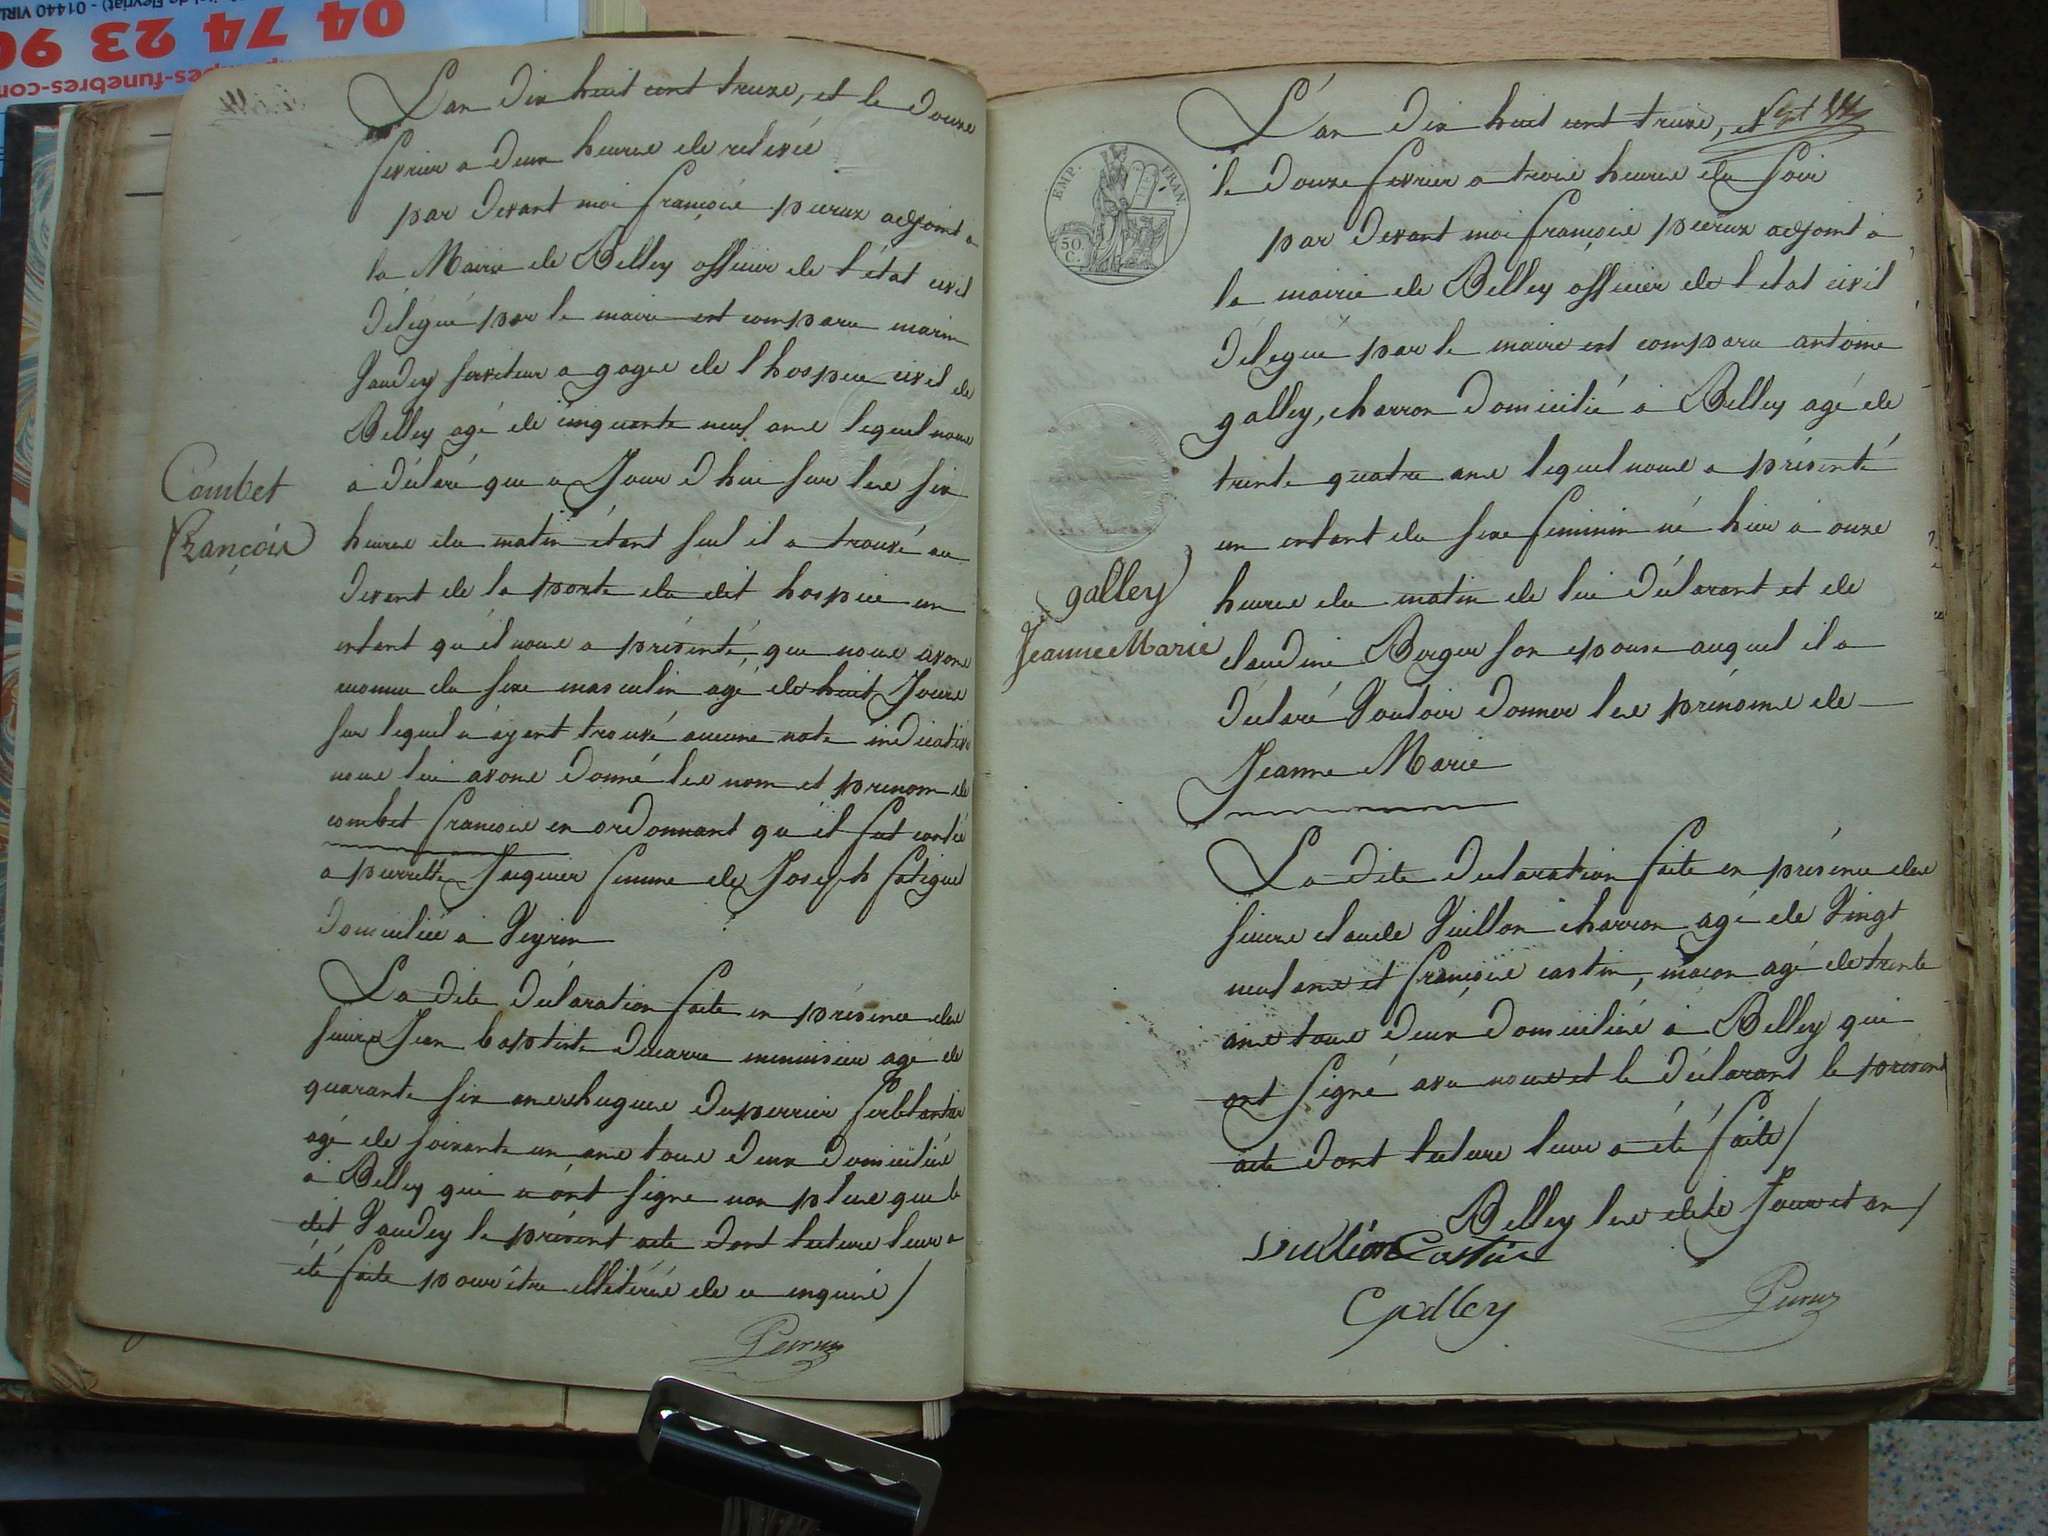 04 74 23 90
L'an dix huit cent treize, et le douze
fevrier a deux heures de relevée
par devant moi françois peeruz adjoint a
la Mairie de Belley officier de l'état civil
délégué par le maire est comparu marin
Vaudey serviteur a gages de l'hospice civil de
Belley agé de cinquante neuf ans lequel nous
a déclaré que a Jour d'hui sur les six
heures du matin étant seul il a trouvé au
devant de la porte du dit hospice un
enfant qu'il nous a présenté, que nous avons
reconnu du sexe masculin agé de huit Jours
sur lequel n'ayent trouvé aucune note indicative
nous lui avons donné les nom et prenom de
combet françois en ordonnant qu'il fut confié
a pierrette femme de Joseph
domiciliée a Veyrin
La dite déclaration faite en présence des
sieurs Jean baptiste menuisier agé de
quarante six ans et hugues duperrier ferblantier
agé de soixante un ans tous deux domiciliés
à Belley qui n'ont signé non plus que le
dit Vaudey le présent acte dont lecture leur a
été faite pour être illétérés de ce enquis /
Combet
François
EMP. FRAN.
50.
C.
L'an dix huit cent treize, et
le douze fevrier a trois heures du soir
par devant moi françois peeruz adjoint a
la mairie de Belley officier de l'état civil
délégué par le maire est comparu antoine
galley, charron domicilié à Belley agé de
trente quatre ans lequel nous a présenté
un enfant du sexe feminin né hier à onze
heures du matin de lui déclarant et de
claudine Berger son epouse auquel il a
déclaré Vouloir donner les prénoms de
Jeanne Marie
galley
Jeanne Marie
La dite déclaration faite en présence des
sieurs claude Vuillon charron agé de Vingt
neuf ans et françois castin, maçon agé de trente
ans tous deux domiciliés à Belley qui
ont signé avec nous et le déclarant le présent
acte dont lecture leur a été faite /
Belley les dits Jour et an /
Galley